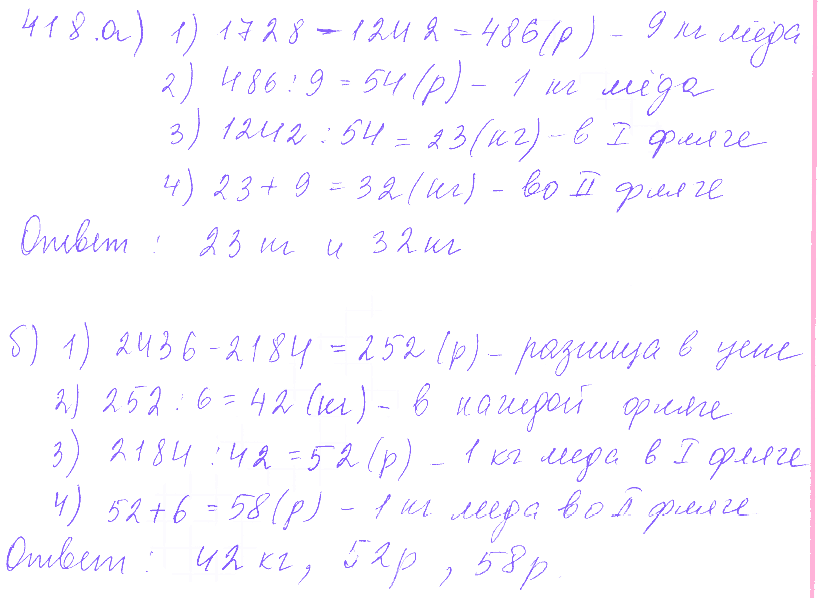 418.а) 1) 1728 - 1242 = 486(р) - 9 кг мёда
2) 486 : 9 = 54(р) - 1 кг мёда
3) 1242 : 54 = 23(кг) - в I фляге
4) 23 + 9 = 32(кг) - во II фляге
Ответ : 23 кг и 32 кг
б) 1) 2436 - 2184 = 252 (р) - разница в цене
2) 252 : 6 = 42 (кг) - в каждой фляге
3) 2184 : 42 = 52(р) - 1 кг меда в I фляге
4) 52 + 6 = 58(р) - 1 кг меда во II фляге
Ответ : 42 кг, 52р, 58р.